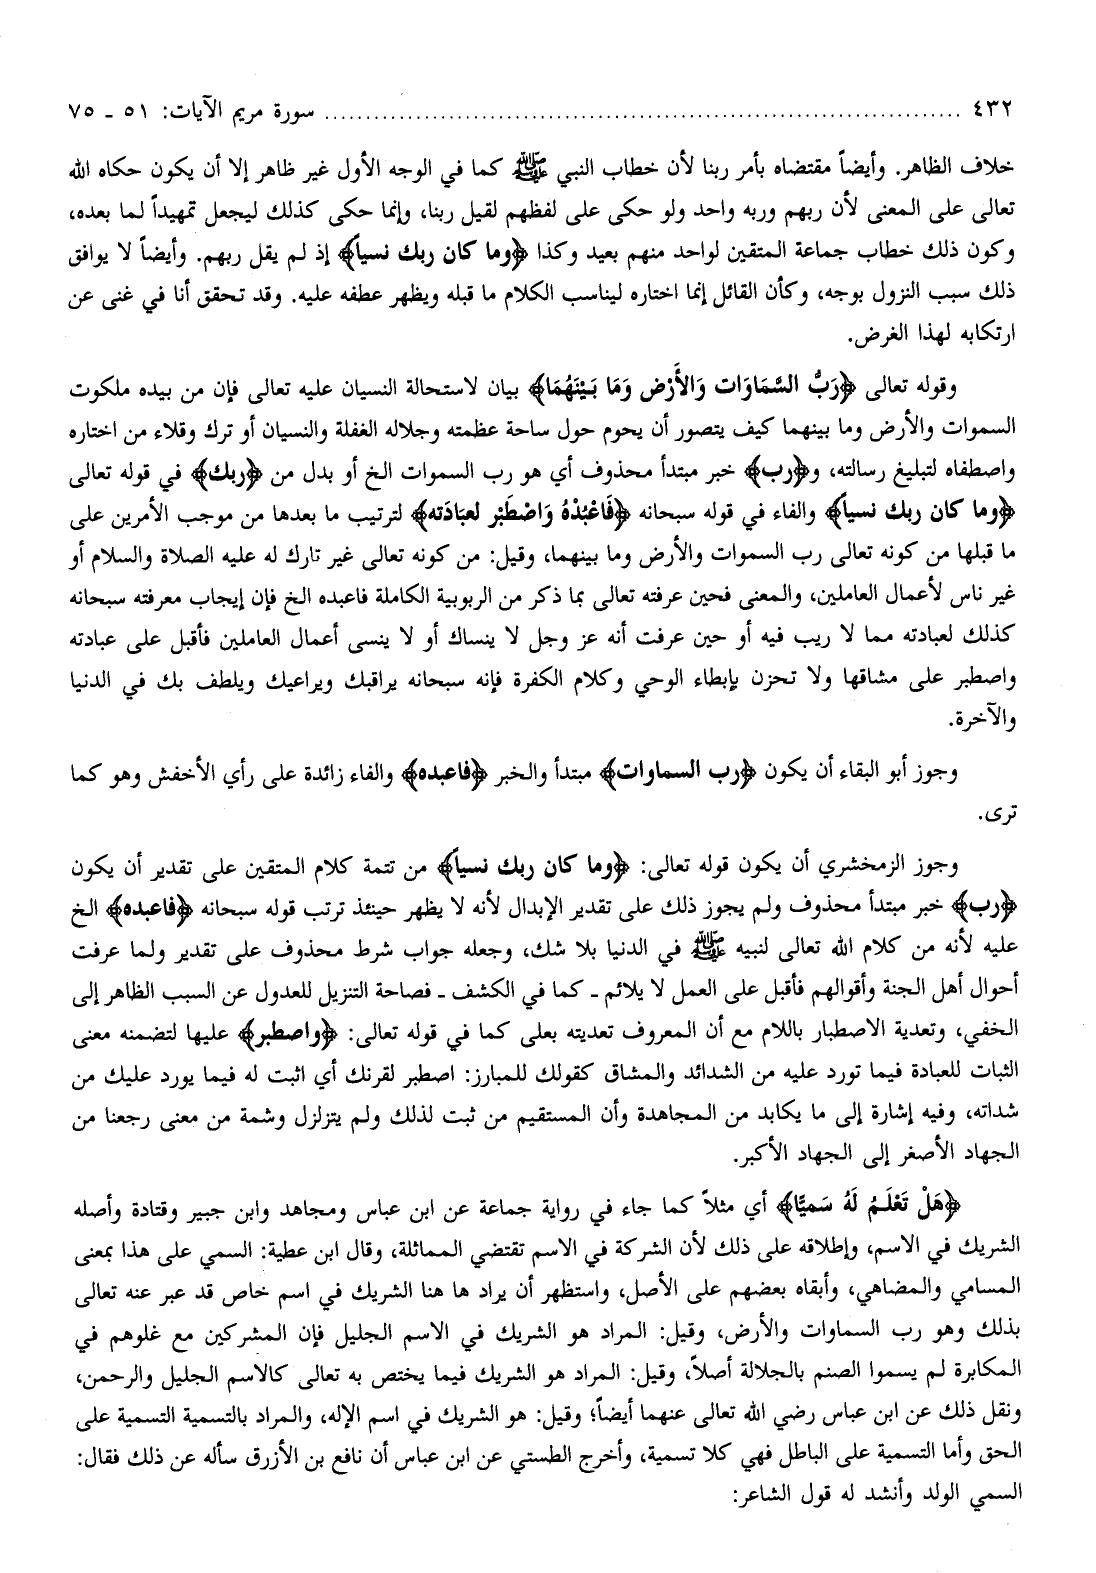 ٤٣٢ ........................................................ سورة مريم الآيات: ٥١ ـ ٧٥
خلاف الظاهر. وأيضاً مقتضاه بأمر ربنا لأن خطاب النبي ﷺ كما في الوجه الأول غير ظاهر إلا أن يكون حكاه الله
تعالى على المعنى لأن ربهم وربه واحد ولو حكى على لفظهم لقيل ربنا، وإنما حكى كذلك ليجعل تمهيداً لما بعده،
وكون ذلك خطاب جماعة المتقين لواحد منهم بعيد وكذا ﴿وما كان ربك نسياً﴾ إذ لم يقل ربهم. وأيضاً لا يوافق
ذلك سبب النزول بوجه، وكأن القائل إنما اختاره ليناسب الكلام ما قبله ويظهر عطفه عليه. وقد تحقق أنا في غنى عن
ارتكابه لهذا الغرض.
وقوله تعالى ﴿رَبُّ السَّمَاوَات وَالأَرْض وَمَا بَيْنَهُمَا﴾ بيان لاستحالة النسيان عليه تعالى فإن من بيده ملكوت
السموات والأرض وما بينهما كيف يتصور أن يحوم حول ساحة عظمته وجلاله الغفلة والنسيان أو ترك وقلاء من اختاره
واصطفاه لتبليغ رسالته، و﴿رب﴾ خبر مبتدأ محذوف أي هو رب السموات الخ أو بدل من ﴿ربك﴾ في قوله تعالى
﴿وما كان ربك نسياً﴾ والفاء في قوله سبحانه ﴿فَاعْبُدْهُ وَاصْطَبْر لعبَادَته﴾ لترتيب ما بعدها من موجب الأمرين على
ما قبلها من كونه تعالى رب السموات والأرض وما بينهما، وقيل: من كونه تعالى غير تارك له عليه الصلاة والسلام أو
غير ناس لأعمال العاملين، والمعنى فحين عرفته تعالى بما ذكر من الربوبية الكاملة فاعبده الخ فإن إيجاب معرفته سبحانه
كذلك لعبادته مما لا ريب فيه أو حين عرفت أنه عز وجل لا ينساك أو لا ينسى أعمال العاملين فأقبل على عبادته
واصطبر على مشاقها ولا تحزن بإبطاء الوحي وكلام الكفرة فإنه سبحانه يراقبك ويراعيك ويلطف بك في الدنيا
والآخرة.
وجوز أبو البقاء أن يكون ﴿رب السماوات﴾ مبتدأ والخبر ﴿فاعبده﴾ والفاء زائدة على رأي الأخفش وهو كما
ترى.
وجوز الزمخشري أن يكون قوله تعالى: ﴿وما كان ربك نسياً﴾ من تتمة كلام المتقين على تقدير أن يكون
﴿رب﴾ خبر مبتدأ محذوف ولم يجوز ذلك على تقدير الإبدال لأنه لا يظهر حينئذ ترتب قوله سبحانه ﴿فاعبده﴾ الخ
عليه لأنه من كلام الله تعالى لنبيه ﷺ في الدنيا بلا شك، وجعله جواب شرط محذوف على تقدير ولما عرفت
أحوال أهل الجنة وأقوالهم فأقبل على العمل لا يلائم ـ كما في الكشف ـ فصاحة التنزيل للعدول عن السبب الظاهر إلى
الخفي، وتعدية الاصطبار باللام مع أن المعروف تعديته بعلى كما في قوله تعالى: ﴿واصطبر﴾ عليها لتضمنه معنى
الثبات للعبادة فيما تورد عليه من الشدائد والمشاق كقولك للمبارز: اصطبر لقرنك أي اثبت له فيما يورد عليك من
شداته، وفيه إشارة إلى ما يكابد من المجاهدة وأن المستقيم من ثبت لذلك ولم يتزلزل وشمة من معنى رجعنا من
الجهاد الأصغر إلى الجهاد الأكبر.
﴿هَلْ تَعْلَمُ لَهُ سَميًّا﴾ أي مثلاً كما جاء في رواية جماعة عن ابن عباس ومجاهد وابن جبير وقتادة وأصله
الشريك في الاسم، وإطلاقه على ذلك لأن الشركة في الاسم تقتضي المماثلة، وقال ابن عطية: السمي على هذا بمعنى
المسامي والمضاهي، وأبقاه بعضهم على الأصل، واستظهر أن يراد ها هنا الشريك في اسم خاص قد عبر عنه تعالى
بذلك وهو رب السماوات والأرض، وقيل: المراد هو الشريك في الاسم الجليل فإن المشركين مع غلوهم في
المكابرة لم يسموا الصنم بالجلالة أصلاً، وقيل: المراد هو الشريك فيما يختص به تعالى كالاسم الجليل والرحمن،
ونقل ذلك عن ابن عباس رضي الله تعالى عنهما أيضاً؛ وقيل: هو الشريك في اسم الإله، والمراد بالتسمية التسمية على
الحق وأما التسمية على الباطل فهي كلا تسمية، وأخرج الطستي عن ابن عباس أن نافع بن الأزرق سأله عن ذلك فقال:
السمي الولد وأنشد له قول الشاعر: